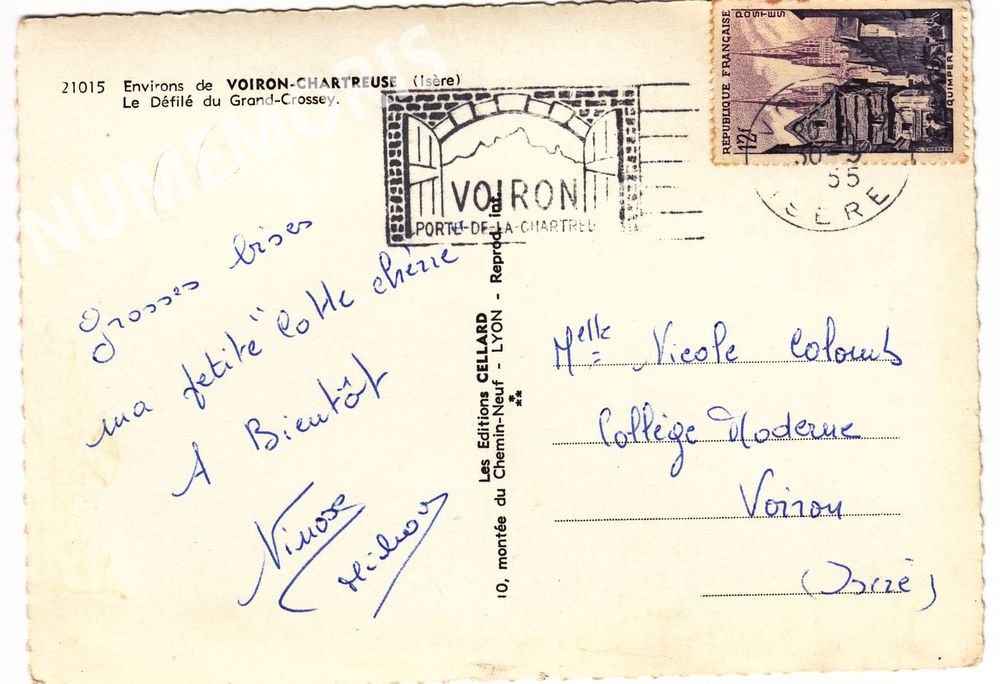 21015 Environs de VOIRON-CHARTREUSE (Isère)
Le Défilé du Grand-Crossey.
NUMEMORIS
VOIRON
PORTE-DE-LA-CHARTREU
REPUBLIQUE FRANÇAISE
POSTES
12f
QUIMPER
30-9
55
ISERE
Grosses bises
ma petite "Cotte chérie
A Bientôt
Les Editions CELLARD
10, montée du Chemin-Neuf - LYON - Reprod. int.
Melle Nicole Colomb
Collège Moderne
Voiron
(Isère)